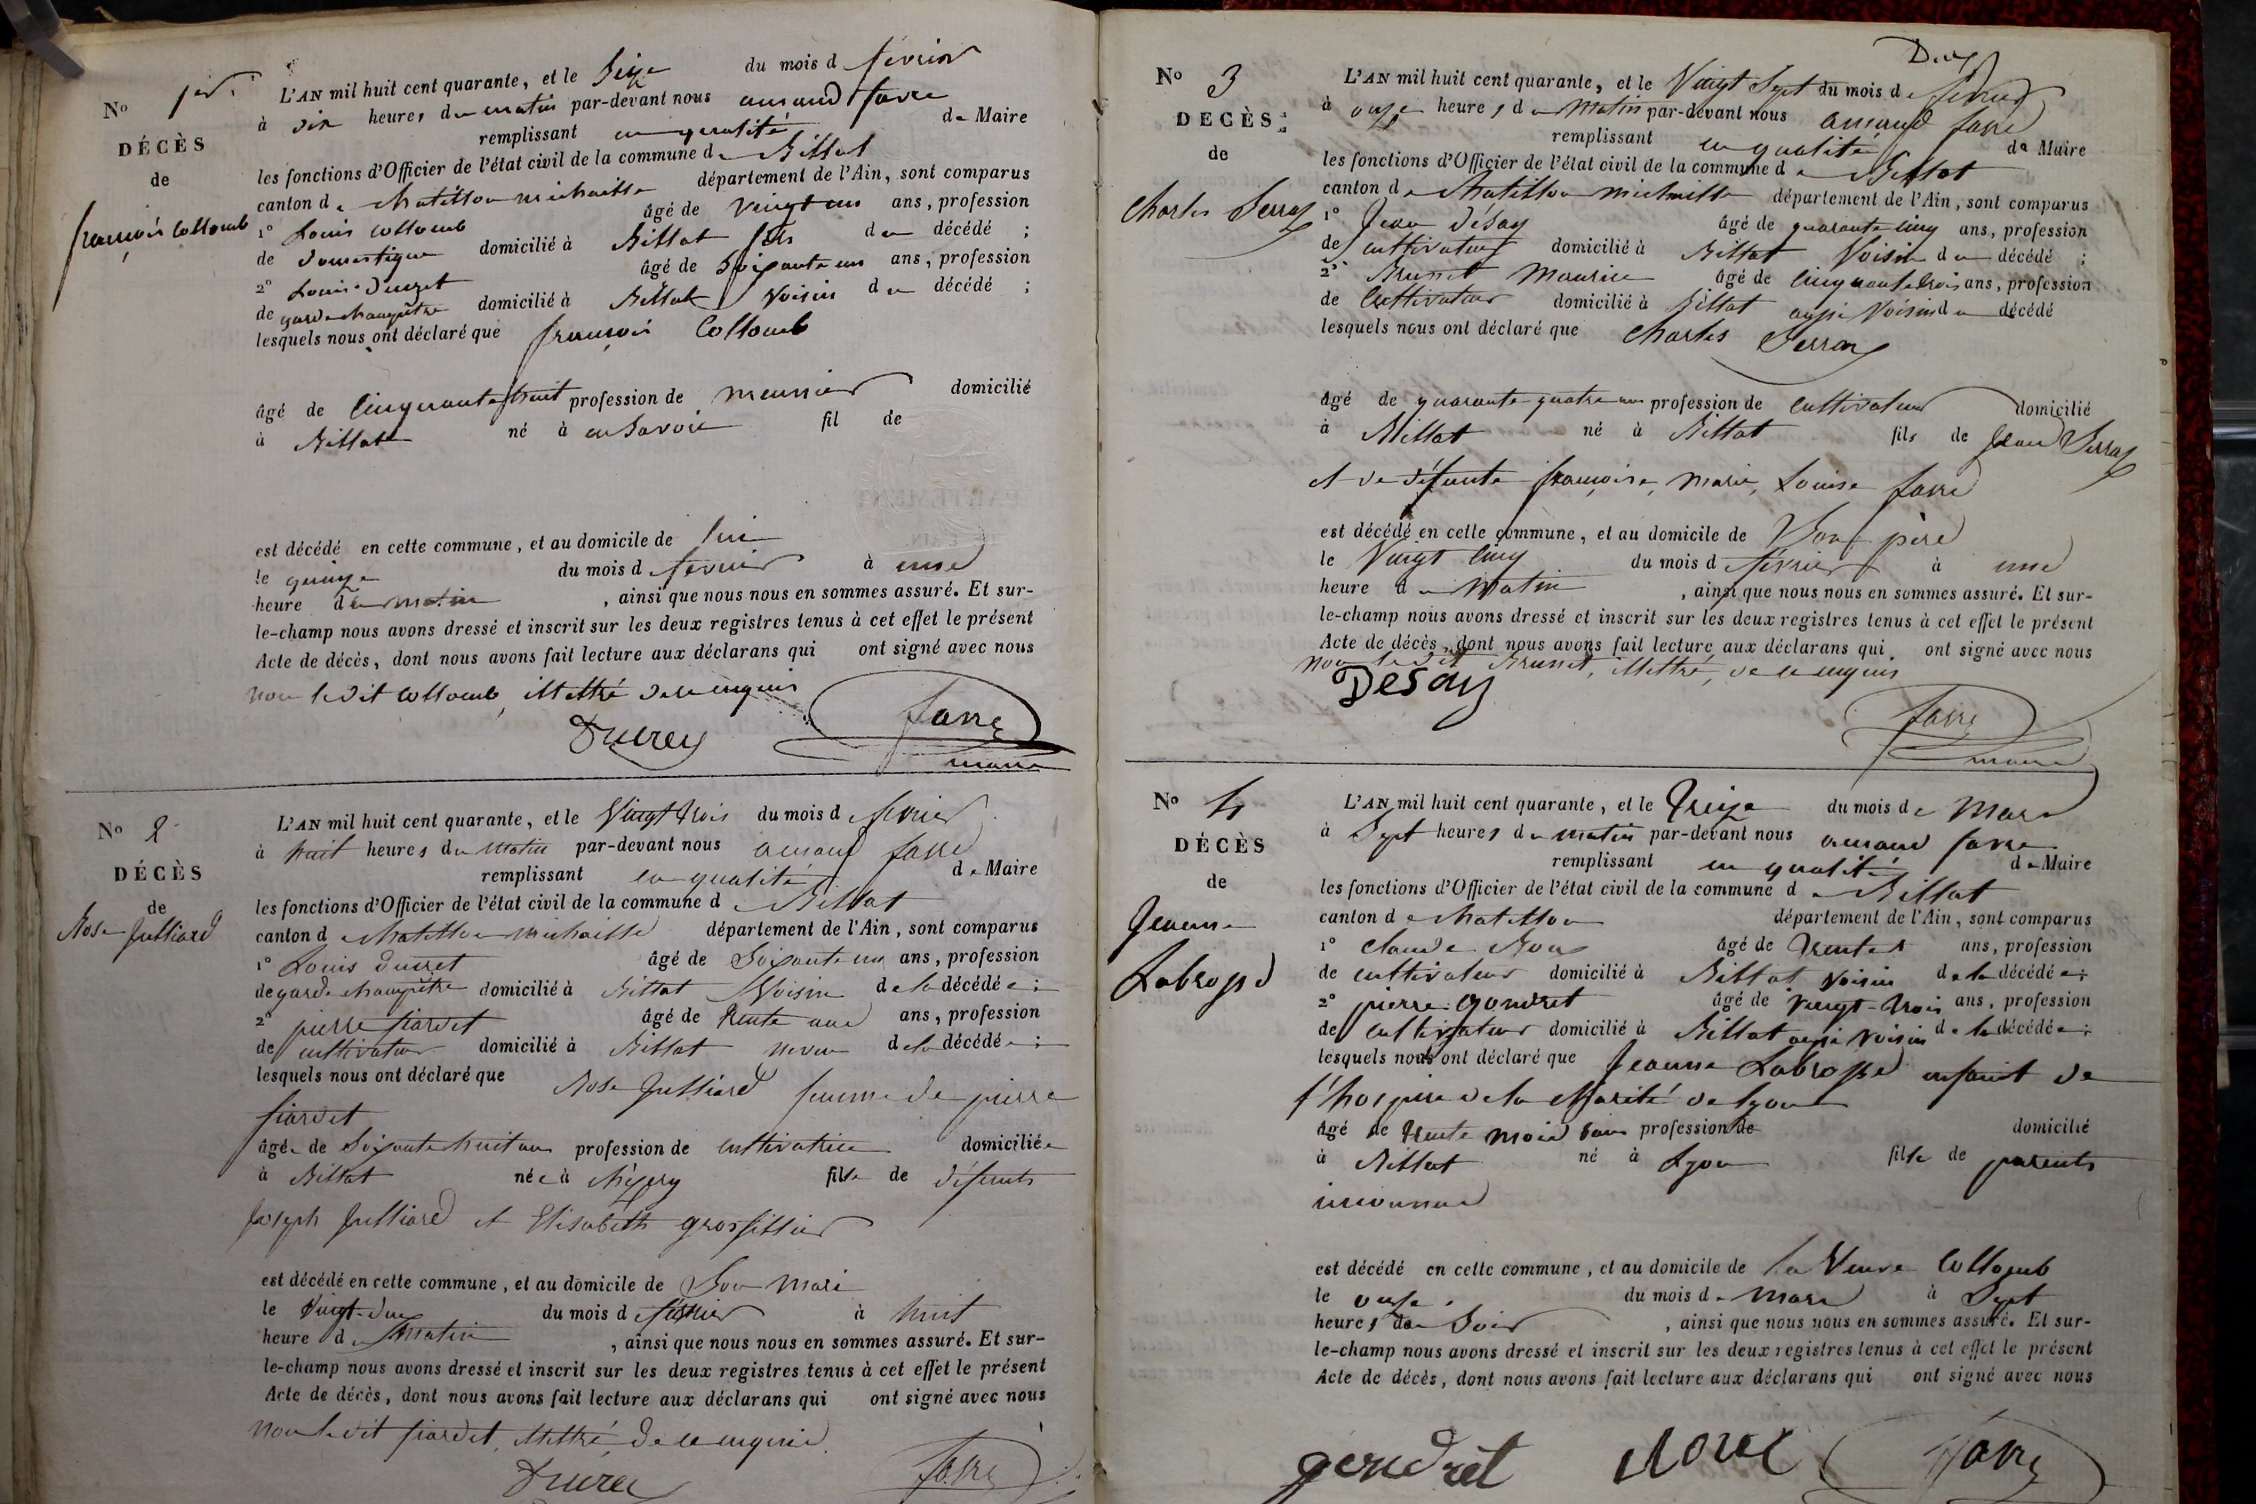 No 1er.
DÉCÈS
de
françois Collomb
L'AN mil huit cent quarante, et le Seize du mois de février
à dix heures du matin par-devant nous armand favre
remplissant en qualité de Maire
les fonctions d'Officier de l'état civil de la commune de Billat
canton de Chatillon michaille département de l'Ain, sont comparus
1o Louis Collomb âgé de vingt ans, profession
de domestique domicilié à Billat fils du décédé ;
2o Louis Ducret âgé de Soixante un ans, profession
de garde champêtre domicilié à Billat Voisin du décédé ;
lesquels nous ont déclaré que françois Collomb
âgé de Cinquante huit profession de meunier domicilié
à Billat né à en Savoie fil de
est décédé en cette commune, et au domicile de lui
le quinze du mois de février à une
heure du matin, ainsi que nous nous en sommes assuré. Et sur-
le-champ nous avons dressé et inscrit sur les deux registres tenus à cet effet le présent
Acte de décès, dont nous avons fait lecture aux déclarans qui ont signé avec nous
non ledit Collomb, illettré de ce enquis
Ducrey favre
maire
No 2
DÉCÈS
de
Rose Julliard
L'AN mil huit cent quarante, et le Vingt trois du mois de février
à huit heures du matin par-devant nous armand favre
remplissant en qualité de Maire
les fonctions d'Officier de l'état civil de la commune de Billat
canton de Chatillon michaille département de l'Ain, sont comparus
1o Louis Ducret âgé de Soixante un ans, profession
de garde champêtre domicilié à Billat Voisin de la décédée ;
2o pierre fiardet âgé de trente ans, profession
de cultivateur domicilié à Billat neveu de la décédée ;
lesquels nous ont déclaré que Rose Julliard femme de pierre
fiardet
âgée de Soixante huit ans profession de cultivatrice domiciliée
à Billat née à Chézery fille de défunts
Joseph Julliard et Elisabeth grosfillier
est décédé en cette commune, et au domicile de Son mari
le Vingt deux du mois de février à huit
heure du matin, ainsi que nous nous en sommes assuré. Et sur-
le-champ nous avons dressé et inscrit sur les deux registres tenus à cet effet le présent
Acte de décès, dont nous avons fait lecture aux déclarans qui ont signé avec nous
non ledit fiardet, illettré, de ce enquis
Ducrey favre
No 3
DECÈS
de
Charles Serraz
L'AN mil huit cent quarante, et le Vingt Sept du mois de février
à onze heures du matin par-devant nous armand favre
remplissant en qualité de Maire
les fonctions d'Officier de l'état civil de la commune de Billat
canton de Chatillon michaille département de l'Ain, sont comparus
1o Jean Désay âgé de quarante cinq ans, profession
de cultivateur domicilié à Billat Voisin du décédé ;
2o Brunet Maurice âgé de cinquante trois ans, profession
de Cultivateur domicilié à Billat aussi Voisin du décédé
lesquels nous ont déclaré que Charles Serraz
âgé de quarante quatre ans profession de cultivateur domicilié
à Billat né à Billat fils de Jean Serraz
et de défunte françoise, marie, Louise favre
est décédé en cette commune, et au domicile de Son père
le Vingt cinq du mois de février à une
heure du matin, ainsi que nous nous en sommes assuré. Et sur-
le-champ nous avons dressé et inscrit sur les deux registres tenus à cet effet le présent
Acte de décès, dont nous avons fait lecture aux déclarans qui ont signé avec nous
non ledit Brunet, illettré, de ce enquis
DeSay favre
maire
No 4
DÉCÈS
de
Jeanne
Labrosse
L'AN mil huit cent quarante, et le Treize du mois de Mars
à Sept heures du matin par-devant nous armand favre
remplissant en qualité de Maire
les fonctions d'Officier de l'état civil de la commune de Billat
canton de Chatillon département de l'Ain, sont comparus
1o Claude âgé de trente ans, profession
de cultivateur domicilié à Billat voisin de la décédée ;
2o pierre gendret âgé de vingt-trois ans, profession
de cultivateur domicilié à Billat aussi voisin de la décédée ;
lesquels nous ont déclaré que Jeanne Labrosse enfant de
l'hospice de la Charité de Lyon
âgé de trente mois sans profession de domicilié
à Billat né à Lyon fille de parents
inconnus
est décédé en cette commune, et au domicile de la Veuve Collomb
le onze du mois de Mars à Sept
heures du Soir, ainsi que nous nous en sommes assuré. Et sur-
le-champ nous avons dressé et inscrit sur les deux registres tenus à cet effet le présent
Acte de décès, dont nous avons fait lecture aux déclarans qui ont signé avec nous
gendret favre